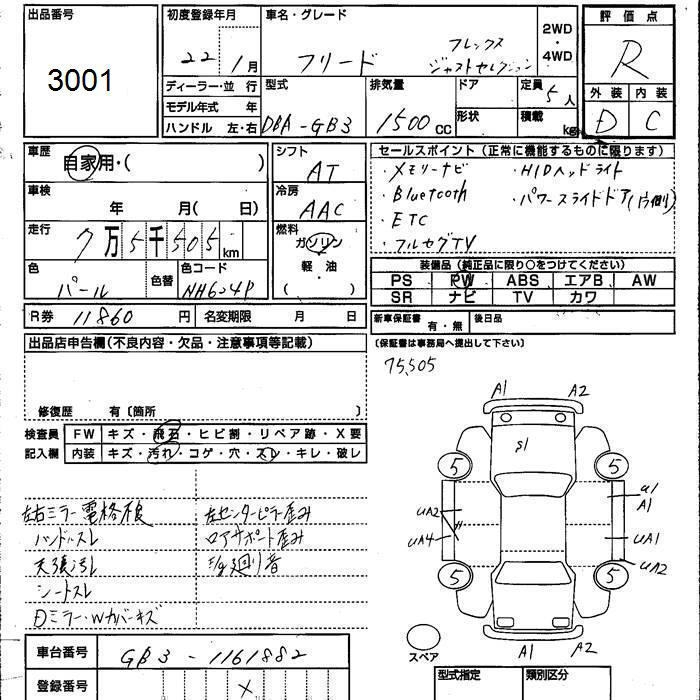 出品番号
3001
初度登録年月
22年 1月
車名・グレード
フリード
フレックス
ジャストセレクション
2WD
・
4WD
評価点
R
外装 内装
D C
ディーラー・並 行
モデル年式 年
ハンドル 左・右
型式
DBA-GB3
排気量
1500 cc
ドア
形状
定員
5人
積載
kg
車歴
自家用・( )
車検
年 月( 日)
走行
7万5千505km
色
パール
色替
色コード
NH624P
シフト
AT
冷房
AAC
燃料
ガソリン
軽・油
( )
セールスポイント(正常に機能するものに限ります)
・メモリーナビ ・HIDヘッドライト
・Bluetooth ・パワースライドドア(片側)
・ETC
・フルセグTV
装備品(純正品に限り〇をつけてください)
PS PW ABS エアB AW
SR ナビ TV カワ
R券 11860 円 名変期限 月 日
新車保証書 有・無 後日品
(保証書は事務局へ提出して下さい)
出品店申告欄(不良内容・欠品・注意事項等記載)
修復歴 有〔箇所 〕
75,505
検査員
記入欄
FW キズ・飛石・ヒビ割・リペア跡・X要
内装 キズ・汚れ・コゲ・穴・スレ・キレ・破レ
左右ミラー電格不良
ハンドルスレ
天張汚れ
シートスレ
Dミラー・Wカバーキズ
左センターピラー歪み
ロアサポート歪み
廻り音
A1 A2
S1
5 5
UA2
UA4
U1
A1
UA1
UA2
5 5
A1 A2
スペア
車台番号 GB3-1161882
登録番号 X
型式指定 類別区分